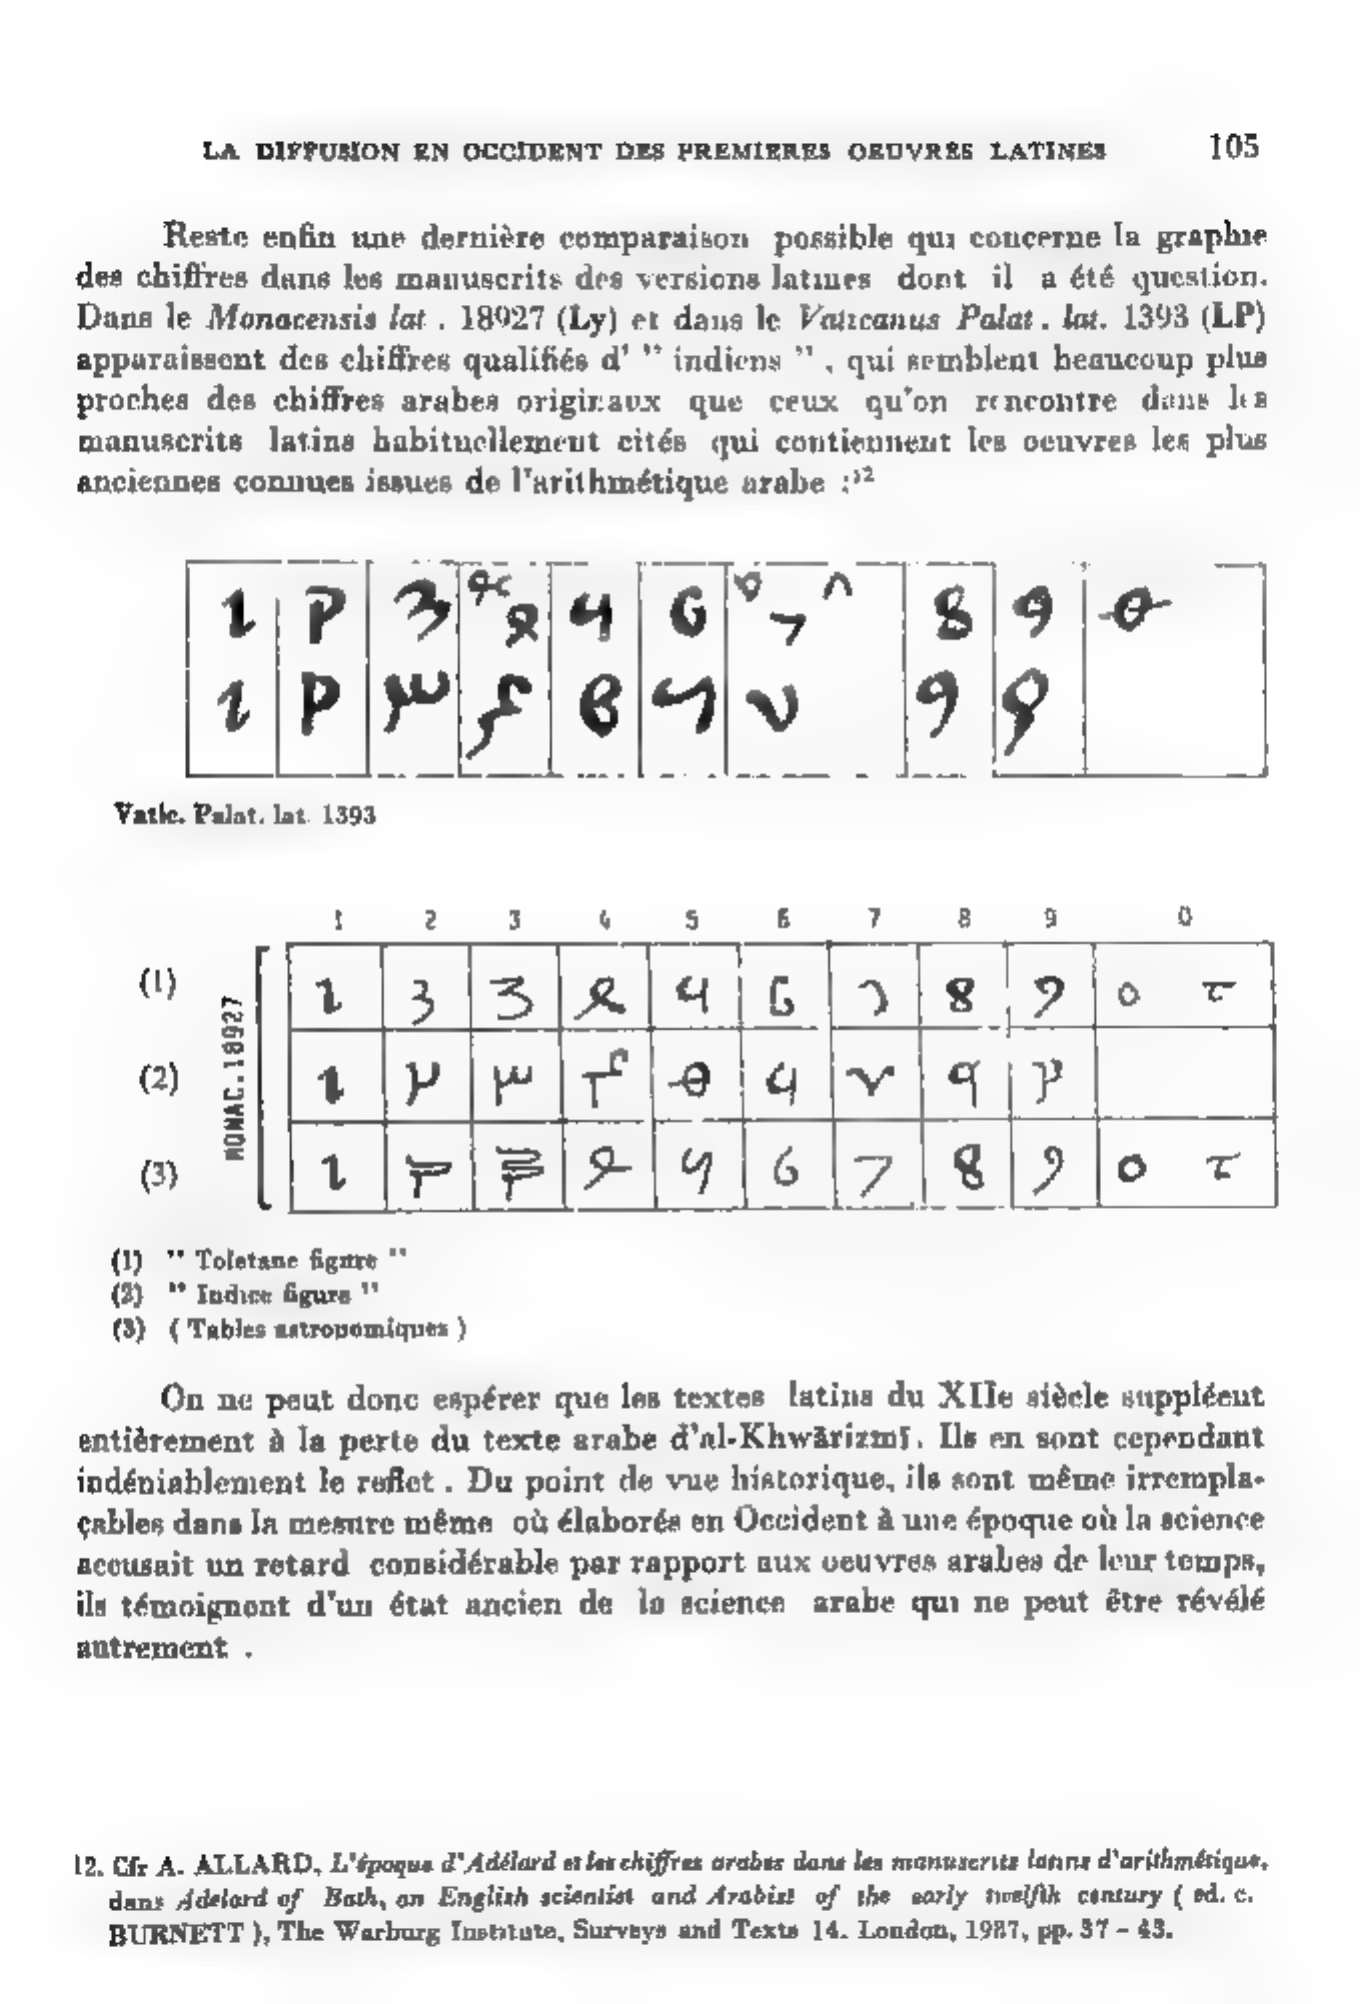 LA DIFFUSION EN OCCIDENT DES PREMIERES OEUVRES LATINES 105
Reste enfin une dernière comparaison possible qui concerne la graphie
des chiffres dans les manuscrits des versions latines dont il a été question.
Dans le Monacensis lat . 18927 (Ly) et dans le Vaticanus Palat . lat. 1393 (LP)
apparaissent des chiffres qualifiés d' " indiens " , qui semblent beaucoup plus
proches des chiffres arabes originaux que ceux qu'on rencontre dans les
manuscrits latins habituellement cités qui contiennent les oeuvres les plus
anciennes connues issues de l'arithmétique arabe :12
Vatic. Palat. lat. 1393
1 2 3 4 5 6 7 8 9 0
(1)
(2)
(3)
MONAC.18927
(1) " Toletane figure "
(2) " Indice figure "
(3) ( Tables astronomiques )
On ne peut donc espérer que les textes latins du XIIe siècle suppléent
entièrement à la perte du texte arabe d'al-Khwārizmī. Ils en sont cependant
indéniablement le reflet . Du point de vue historique, ils sont même irrempla-
çables dans la mesure même où élaborés en Occident à une époque où la science
accusait un retard considérable par rapport aux oeuvres arabes de leur temps,
ils témoignent d'un état ancien de la science arabe qui ne peut être révélé
autrement .
12. Cfr A. ALLARD, L'époque d'Adélard et les chiffres arabes dans les manuscrits latins d'arithmétique,
dans Adelard of Bath, an English scientist and Arabist of the early twelfth century ( ed. c.
BURNETT ), The Warburg Institute, Surveys and Texts 14. London, 1987, pp. 37 – 43.